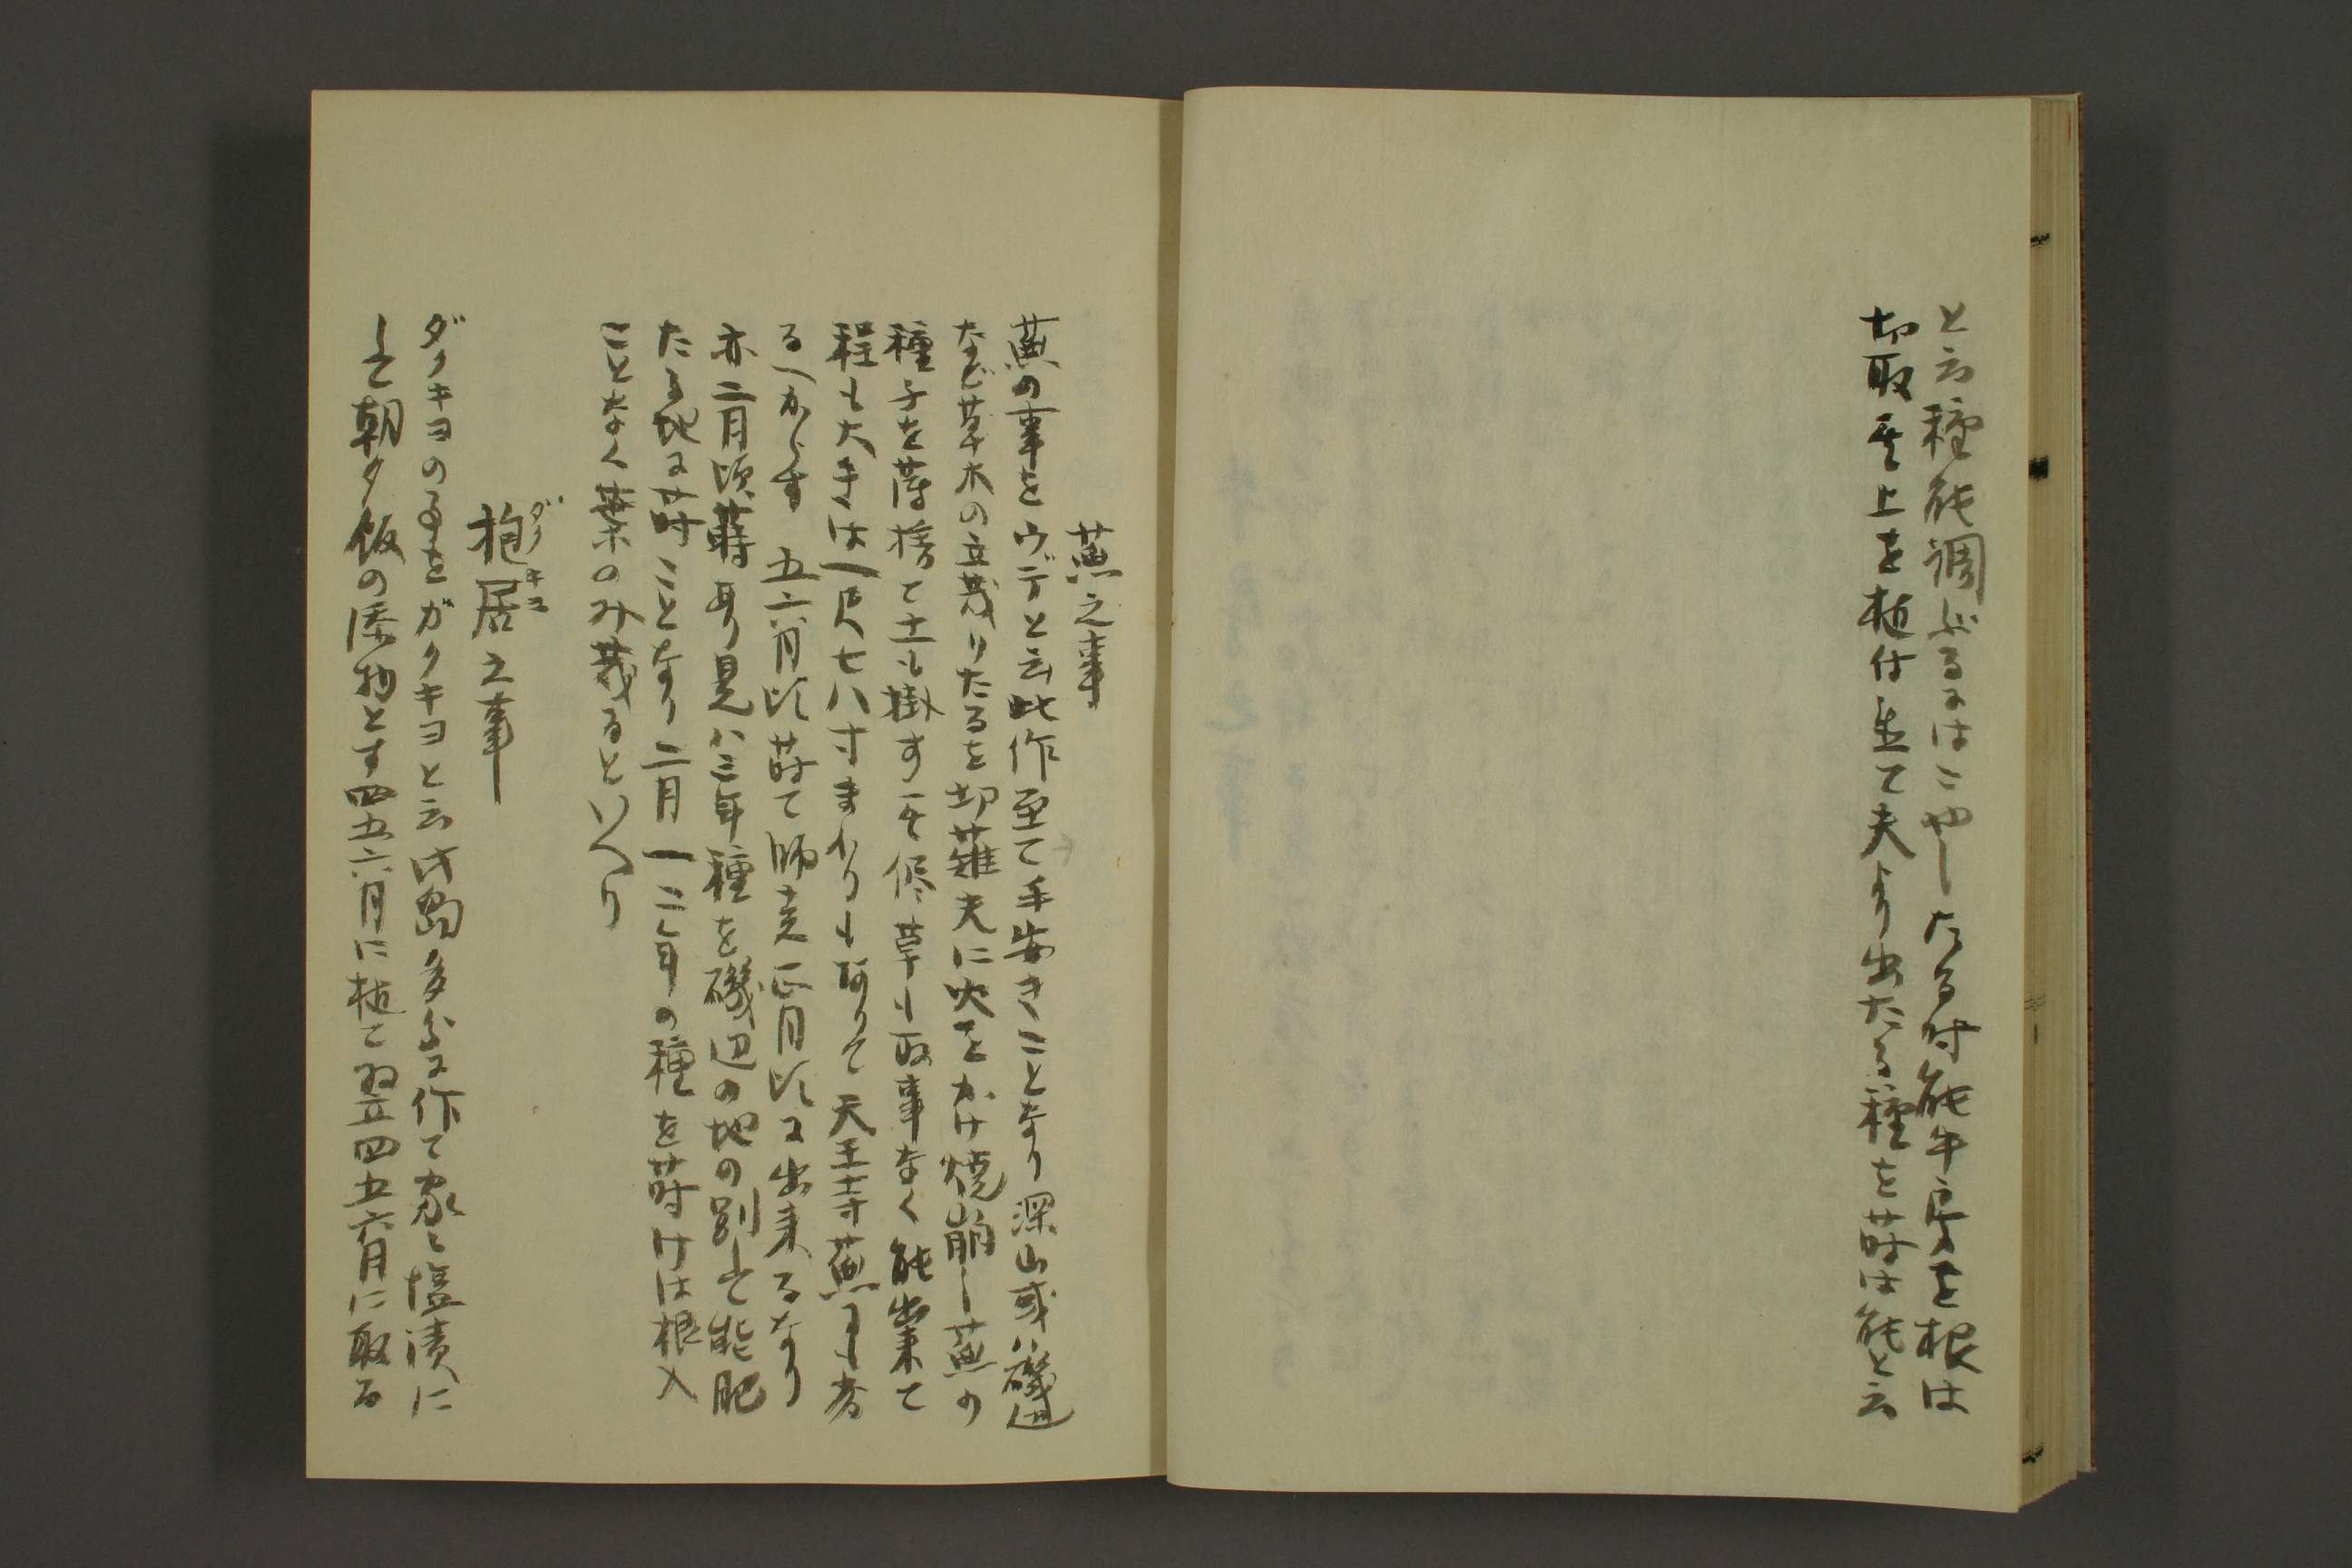 と云種能調ぶるにはこやしたる时能牛房を根は
切取其上を植付置て夫より出たる種を蒔は能と云
蕪之事
蕪の事をウデと云此作至て手安きことなり深山或ハ磯辺
など草木の立茂りたるを切薙夫に火をかけ焼崩し蕪の
種子を蒔捨て土も掛す其侭草も取事なく能出来て
程も大きは一尺七八寸まわりも有りて天王寺蕪にも劣
るへからす 五六月比蒔て師走正月比に出来るなり
亦二月頃蒔あり是ハ三年種を磯辺の地の別して能肥
たる地に蒔ことなり二月一二年の種を蒔けは根入
ことなく葉のみ茂るといへり
抱居之事
ダクキヨ
ダクキヨの事をガクキヨと云此島多分に作て家々塩漬に
して朝夕飯の添物とす四五六月に植て翌四五六月に取る